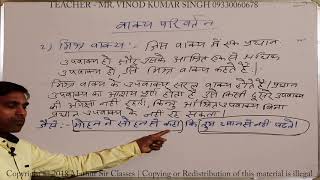 TEACHER - MR. VINOD KUMAR SINGH 09330060678
वाक्य परिवर्तन
2) मिश्र वाक्य :- जिस वाक्य में एक प्रधान
उपवाक्य हो और उसके आश्रित एक से अधिक
उपवाक्य हो, उसे मिश्र वाक्य कहते हैं।
मिश्र वाक्य के उपवाक्य सरल वाक्य होते हैं। प्रधान
उपवाक्य का आशय पूर्ण होता है उसे किसी दूसरे उपवाक्य
की अपेक्षा नहीं रहती, किन्तु आश्रित उपवाक्य बिना
प्रधान उपवाक्य के नहीं रह सकता।
जैसे :- मोहन ने सोहन से कहा कि तुम ध्यान से नहीं पढ़ते।
Copyright © 2018 Mathur Sir Classes | Copying or Redistribution of this material is illegal